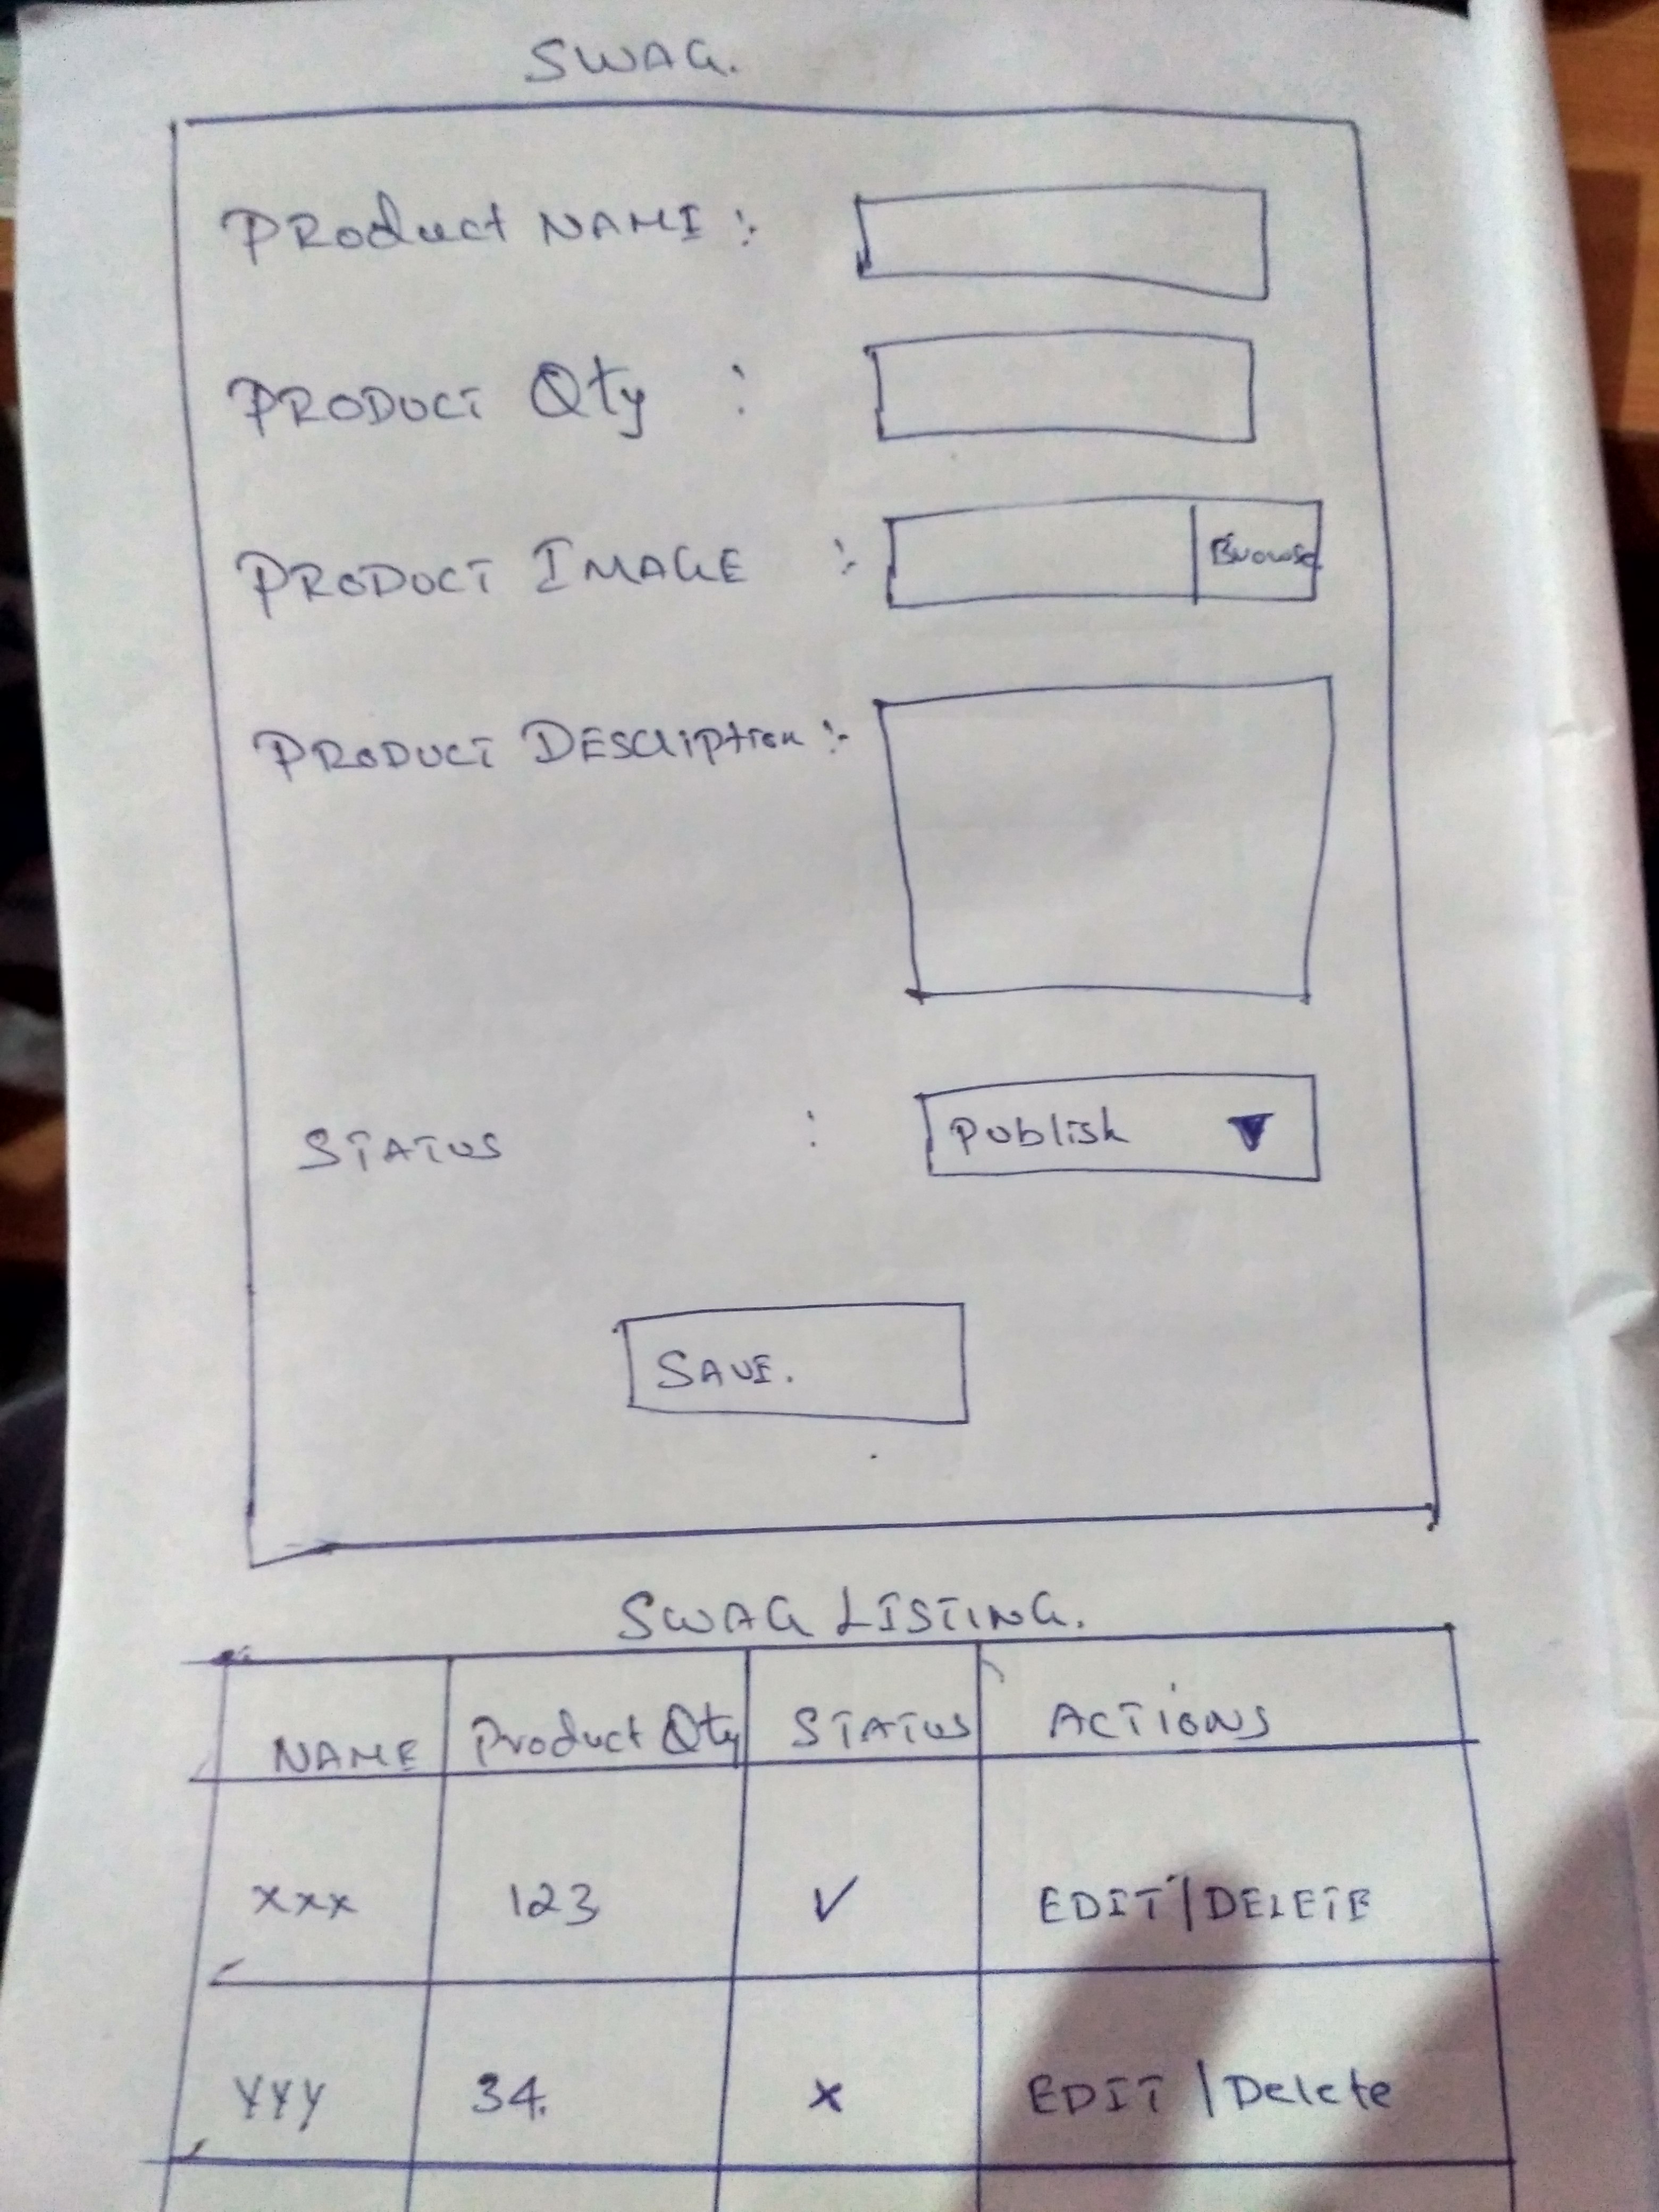 SWAG.
Product NAME :-
PRODUCT Qty :
PRODUCT IMAGE :-
Browse
PRODUCT DEScription :-
STATUS :
Publish
SAVE.
SWAG LISTING.
NAME Product Qty STATUS ACTIONS
xxx 123 ✓ EDIT/DELETE
yyy 34. x EDIT / Delete